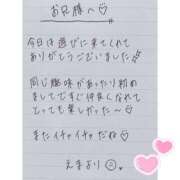 お兄様へ♡
今日は遊びに来てくれて
ありがとうございました
同じ趣味があったり初め
ましてですぐ仲良くなれて
とっても楽しかった〜♡
またイチャイチャだね♡
えまより